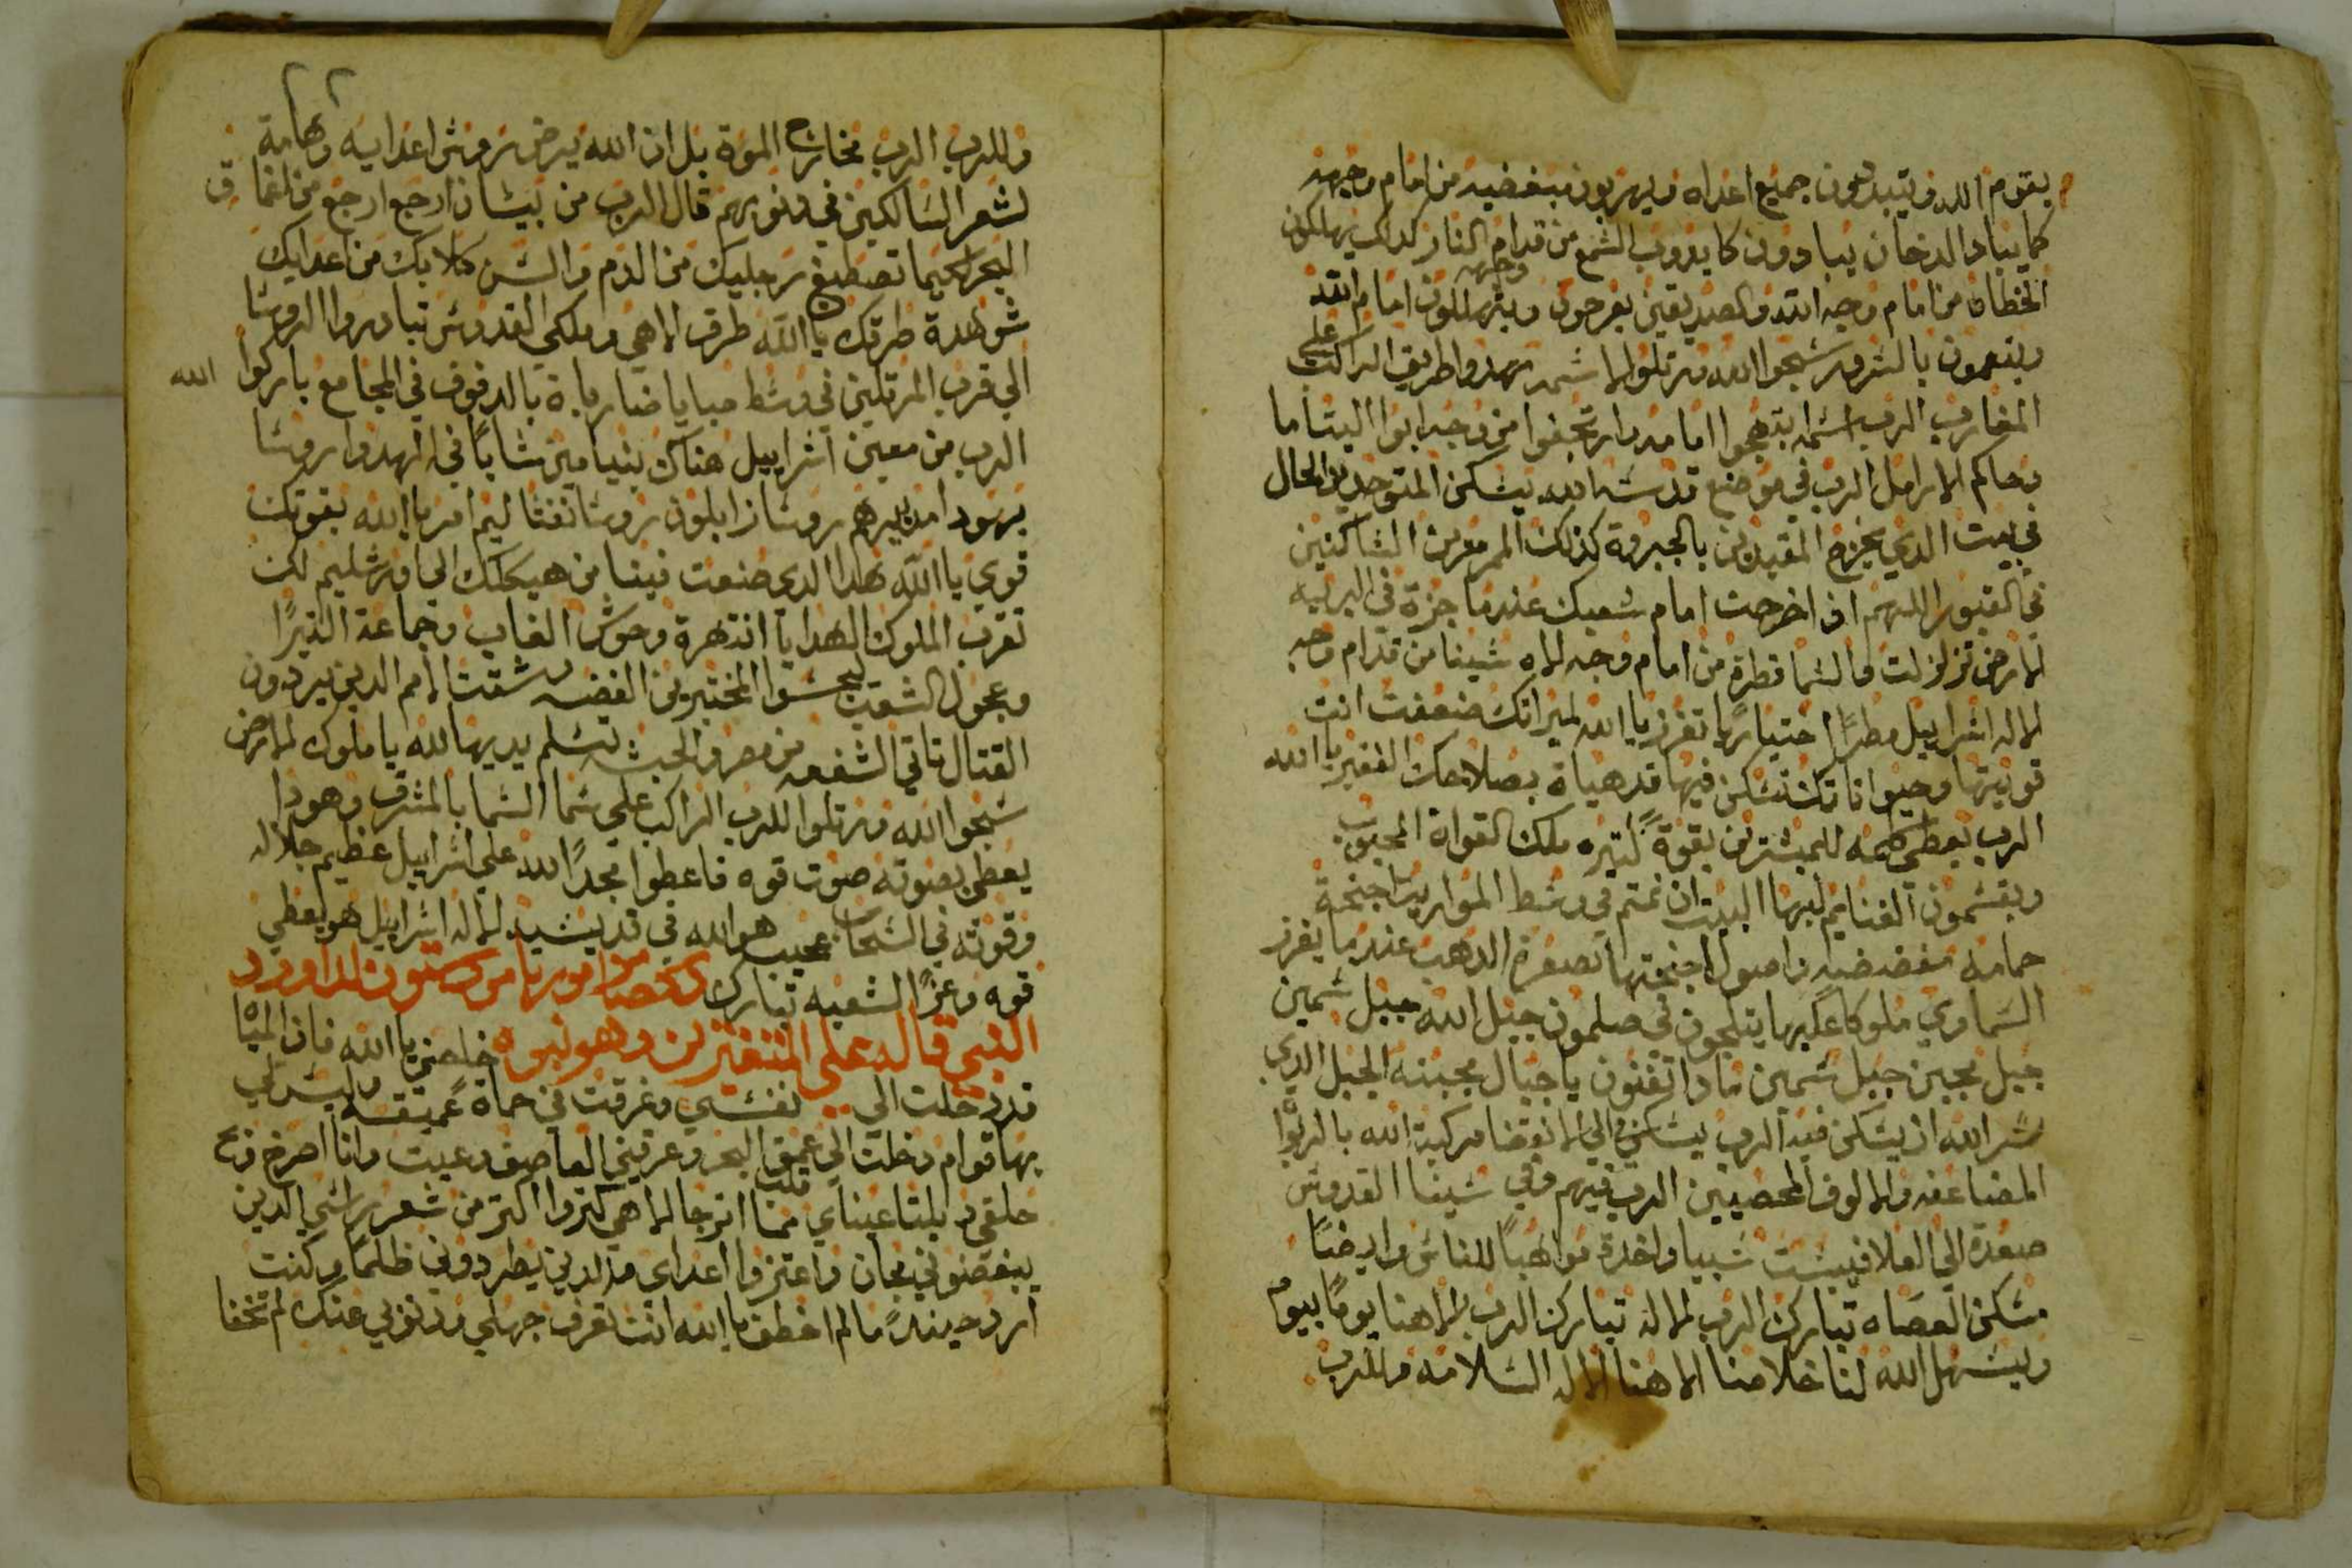 يقوم الله ويتبددون جميع اعداه ويهربون مبغضيه من امام وجهه
كما يباد الدخان يبادون كما يدوب الشمع من قدام النار كذلك يهلكون
الخطاه من امام وجه الله والصديقين يفرحون ويتهللون امام الله
ويتنعمون بالسرور سبحوا الله ورتلوا لاسمه مهدوا طريق الراكب على
المغارب الرب اسمه ابتهجوا امامه وارتجفوا من وجه ابوا اليتاما
وحاكم الارامل الرب في موضع قدسه الله يسكن المتوحدين الحال
في بيت الدي يخرج المقيدين بالجبروة كذلك المرمرين الساكنين
في القبور اللهم اذ اخرجت امام شعبك عندما جزة في البريه
الارض تزلزلت والسما قطرة من امام وجه الاه سينا من قدام وجه
الاله اسراييل مطرًا اختياريا تفرز ياالله لميراتك ضعفت انت
قويتها وحيواناتك تسكن فيها قد هياة بصلاحك الفقير ياالله
الرب يعطي كلمه للمبشرين بقوةً كتيره ملك القواة المحبوب
ويقسمون الغنايم لبها البيت ان نمتم في وسط المواريت اجنحة
حمامه مفضضيه واصول اجنحتها بصفرة الدهب عندما يفرز
السماوي ملوكا عليها يتلجون في صلمون جبل الله جبل سمين
جبل مجبن جبل سمين مادا تظنون ياجبال مجبنه الجبل الدي
سر الله ان يسكن فيه الرب يسكن الي الانقضا مركبة الله بالربوا
المضاعفه والالوف المخصبين الرب فيهم وفي سينا القدوس
صعدة الي العلا فسبيت سبيا واخدة مواهبًا للناس وايضًا
مسكن العصاه تبارك الرب الاله تبارك الرب الاهنا يومًا بيوم
ويسهل الله لنا خلاصنا الاهنا الاله السلامه وللرب
وللرب الرب مخارج الموة بل ان الله يرض روس اعدايه وهامة
لشعر السالكين في دنوبهم قال الرب من بيسان ارجع ارجع من اعماق
البحر لكيما تصطبغ رجليك من الدم والسن كلابك من اعدايك
شوهدة طرقك ياالله طرق الاهي وملكي القدوس تبادروا الروسا
الي قرب المرتلين في وسط صبايا ضارباة بالدفوف في المجامع باركوا الله
الرب من معين اسراييل هناك بنيامين شابًا في اهدوا روسا
يهودا مدبيرهم روسا زابلون روسا نفتاليم امر ياالله بقوتك
قوي ياالله هدا الدي صنعت فينا من هيكلك الي اورشليم لك
تقرب الملوك الهدايا انتهرة وحوش الغاب وجماعة التيرًا
وعجول الشعوب ليحبسوا المختبرين الفضه شتت الامم الدين يريدون
القتال تاتي الشفعه من مصر والحبشه تسلم يديها لله ياملوك الارض
سبحوا الله ورتلوا للرب الراكب علي سما السما بالمشرق وهودا
يعطي بصوته صوت قوه فاعطوا مجدًا لله علي اسراييل عظيم جلاله
وقوته في السحاب عجيب هو الله في قديسيه الاله اسراييل هو يعطي
قوه وعزًا لشعبه تبارك الله
النبي قاله علي المتغيرين وهو نبوه خلصني ياالله فان المياا
قد دخلت الي نفسي وغرقت في حماة عميقه وليس لي
بها قوام دخلت الي عميق البحر وغرقني العاصف وعيت وانا اصرخ وبح
حلقي وبلتا عيناي مما اترجا الاهي كتروا اكتر من شعر راسي الدين
يبغضوني مجان واعتزوا اعداي الدين يطردوني ظلمًا وكنت
ارد حينيدً مالم اخطف ياالله انت تعرف جهلي ودنوبي عنك لم تخفا